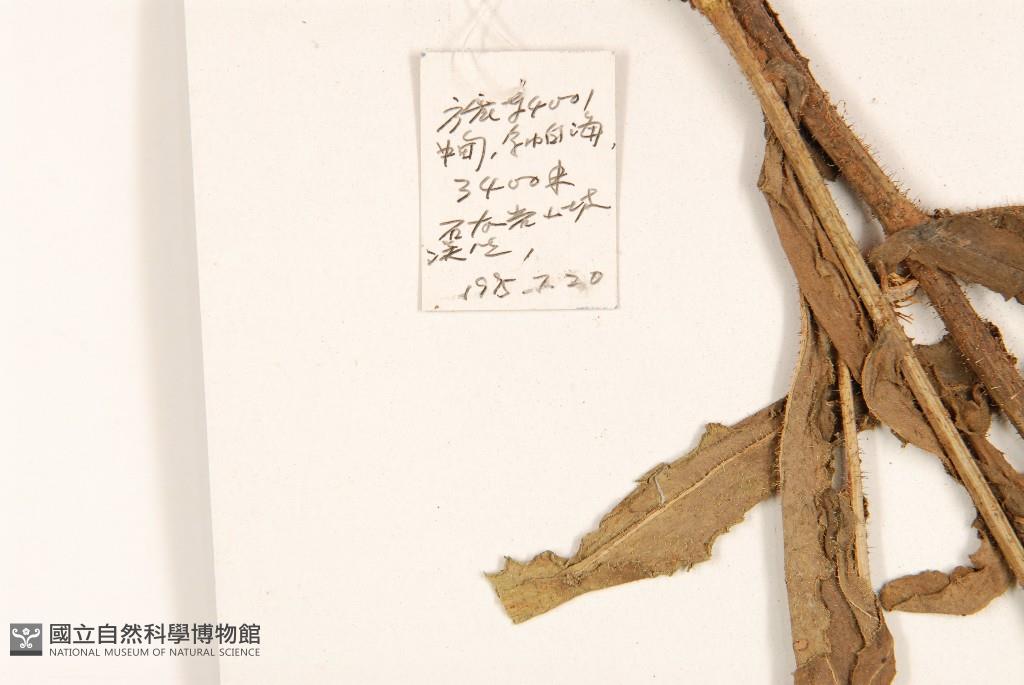 4001
中甸,纳帕海,
3400米
石灰岩山坡
1995.7.20
國立自然科學博物館
NATIONAL MUSEUM OF NATURAL SCIENCE